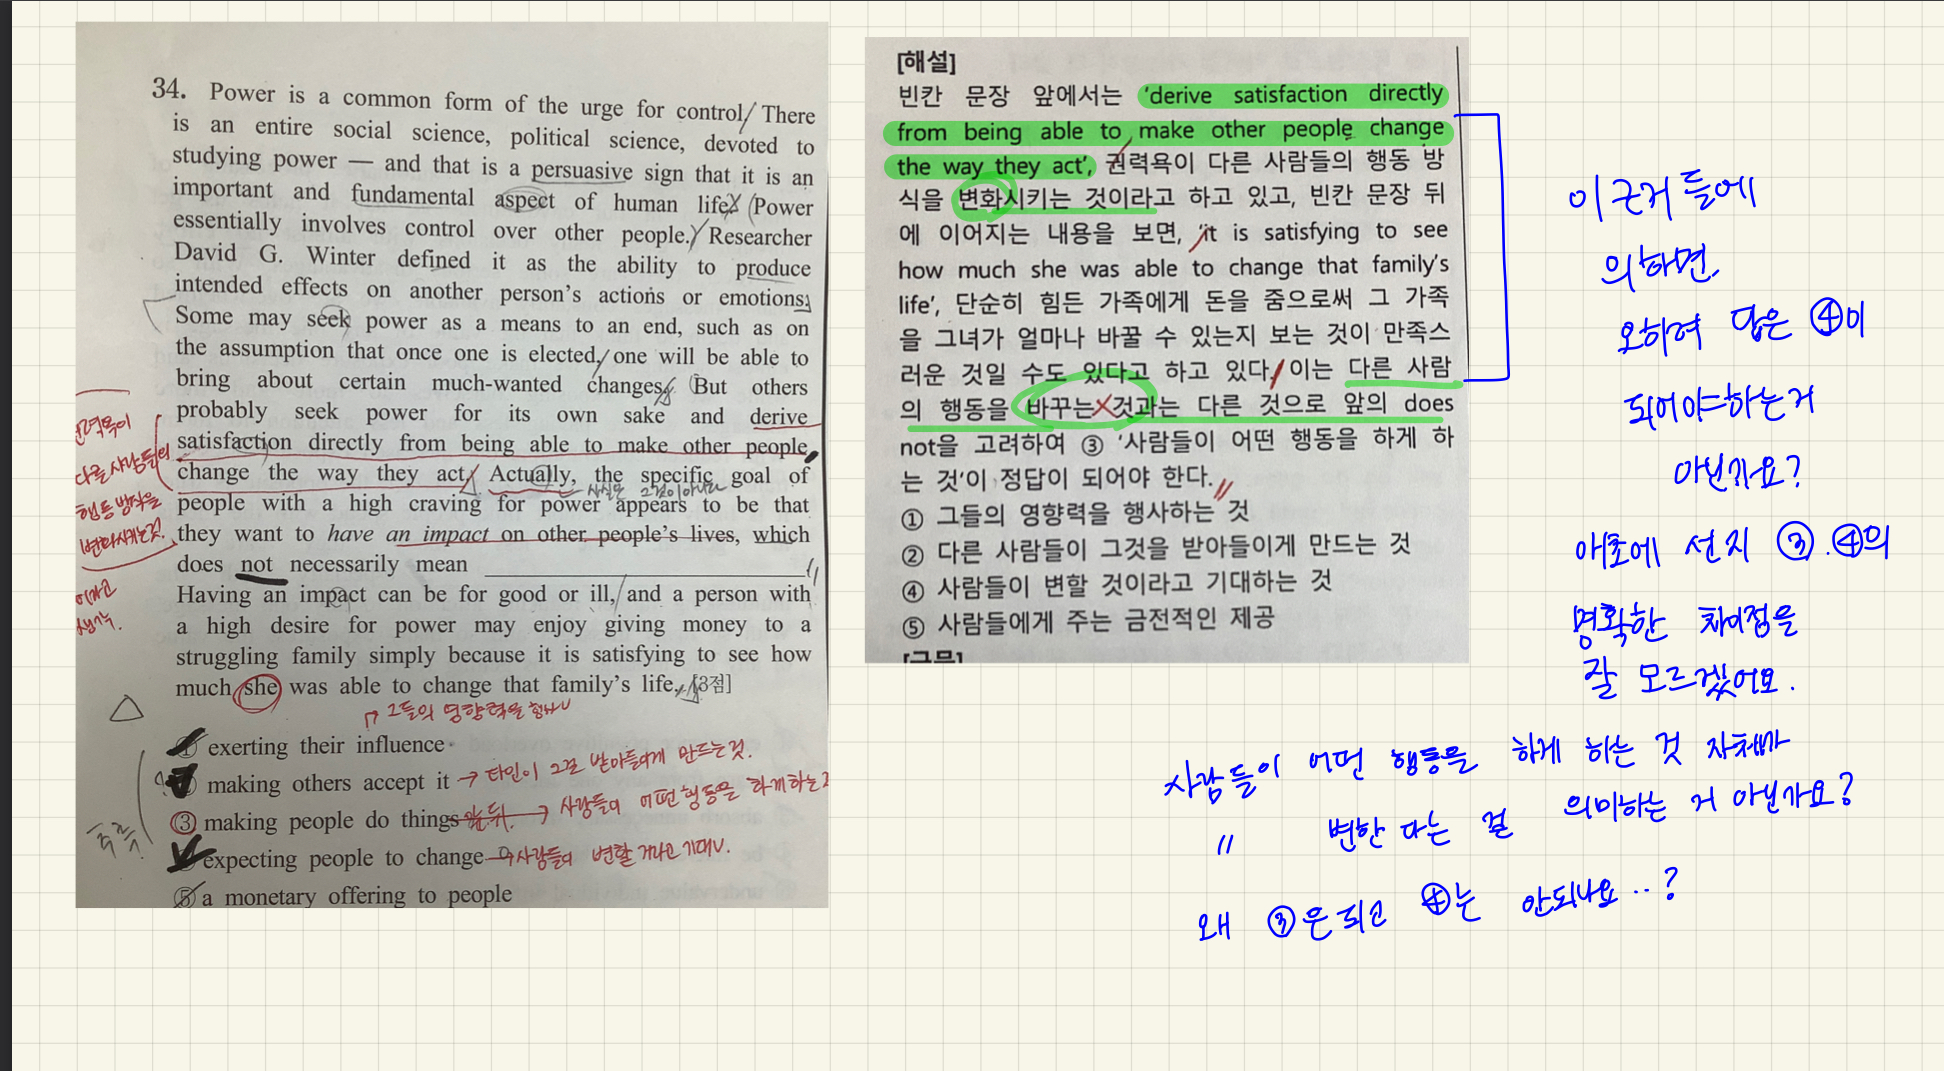 34. Power is a common form of the urge for control. There
is an entire social science, political science, devoted to
studying power — and that is a persuasive sign that it is an
important and fundamental aspect of human life. Power
essentially involves control over other people. Researcher
David G. Winter defined it as the ability to produce
intended effects on another person's actions or emotions.
Some may seek power as a means to an end, such as on
the assumption that once one is elected, one will be able to
bring about certain much-wanted changes. But others
probably seek power for its own sake and derive
satisfaction directly from being able to make other people
change the way they act. Actually, the specific goal of
사실은 그것이 아니라
people with a high craving for power appears to be that
they want to have an impact on other people's lives, which
does not necessarily mean ____________________.
Having an impact can be for good or ill, and a person with
a high desire for power may enjoy giving money to a
struggling family simply because it is satisfying to see how
much she was able to change that family's life. [3점]
권력욕이
다른 사람들의
행동 방식을
변화시키는것.
이라고
생각.
그들의 영향력을 행사
① exerting their influence
② making others accept it → 타인이 그걸 받아들이게 만드는것.
③ making people do things → 사람들이 어떤 행동을 하게하는 것
④ expecting people to change → 사람들이 변할 거라고 기대
⑤ a monetary offering to people
[해설]
빈칸 문장 앞에서는 'derive satisfaction directly
from being able to make other people change
the way they act', 권력욕이 다른 사람들의 행동 방
식을 변화시키는 것이라고 하고 있고, 빈칸 문장 뒤
에 이어지는 내용을 보면, 'it is satisfying to see
how much she was able to change that family's
life', 단순히 힘든 가족에게 돈을 줌으로써 그 가족
을 그녀가 얼마나 바꿀 수 있는지 보는 것이 만족스
러운 것일 수도 있다고 하고 있다. 이는 다른 사람
의 행동을 바꾸는 것과는 다른 것으로 앞의 does
not을 고려하여 ③ '사람들이 어떤 행동을 하게 하
는 것'이 정답이 되어야 한다.
① 그들의 영향력을 행사하는 것
② 다른 사람들이 그것을 받아들이게 만드는 것
④ 사람들이 변할 것이라고 기대하는 것
⑤ 사람들에게 주는 금전적인 제공
[구문]
이 근거 들에
의하면
오히려 답은 ④이
되어야하는거
아닌가요?
애초에 선지 ③.④의
명확한 차이점을
잘 모르겠어요.
사람들이 어떤 행동을 하게 하는 것 자체가
〃 변한 다는 걸 의미하는 거 아닌가요?
왜 ③은 되고 ④는 안되나요..?